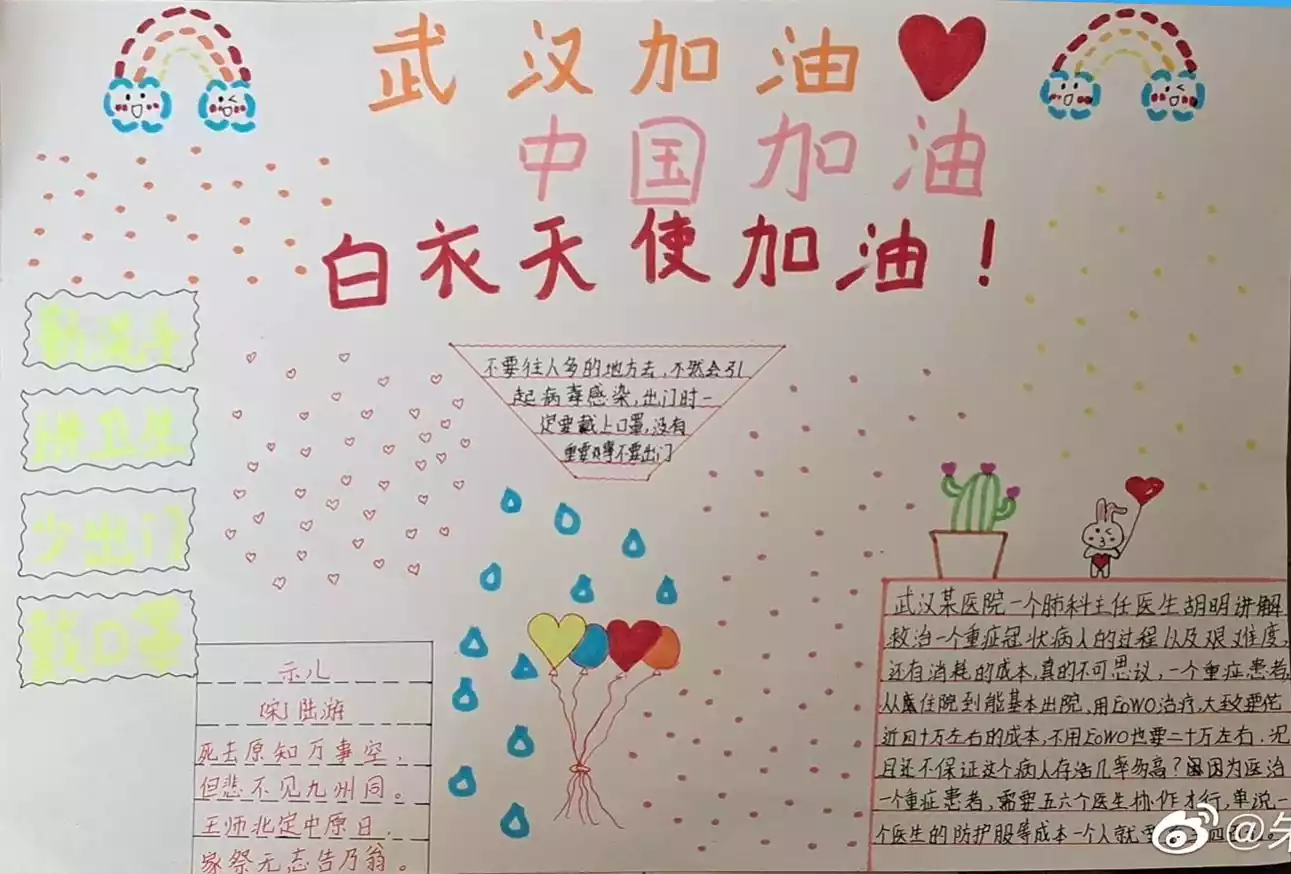 武汉加油
中国加油
白衣天使加油！
勤洗手
讲卫生
少出门
戴口罩
不要往人多的地方去,不然会引
起病毒感染,出门时一
定要戴上口罩,没有
重要的事不要出门
示儿
(宋)陆游
死去原知万事空,
但悲不见九州同。
王师北定中原日,
家祭无忘告乃翁。
武汉某医院一个肺科主任医生胡明讲解
救治一个重症冠状病人的过程以及艰难度,
还有消耗的成本,真的不可思议,一个重症患者,
从住院到能基本出院,用EOWO治疗,大致要花
近四十万左右的成本,不用EOWO也要二十万左右.况
且还不保证这个病人存活几率多高?因为医治
一个重症患者,需要五六个医生协作才行,单说一
个医生的防护服等成本一个人就
@朱